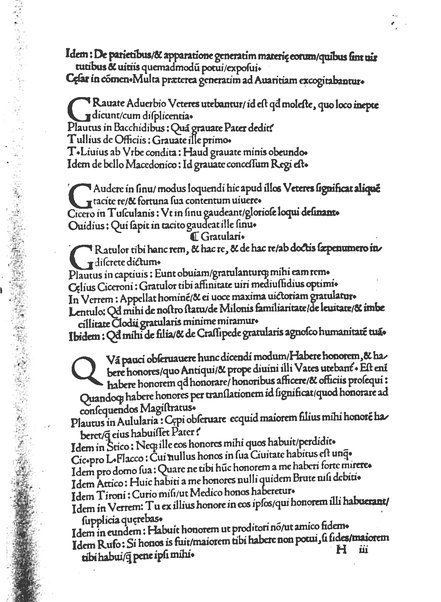 Idem: De parietibus/& apparatione generatim materię eorum/quibus sint uir
tutibus & uitiis quemadmodū potui/exposui.
Cęsar in cōmen. Multa præterea generatim ad Auaritiam excogitabantur.
GRauate Aduerbio Veteres utebantur/id est qđ moleste, quo loco inepte
dicunt/cum displicentia.
Plautus in Bacchidibus: Quā grauate Pater dedit?
Tullius de Officiis: Grauate ille primo.
T. Liuius ab Vrbe condita: Haud grauate minis obeundo.
Idem de bello Macedonico: Id grauate concessum Regi est.
GAudere in sinu/modus loquendi hic apud illos Veteres significat aliquē
tacite re/& fortuna sua contentum uiuere.
Cicero in Tusculanis: Vt in sinu gaudeant/gloriose loqui desinant.
Ouidius: Qui sapit in tacito gaudeat ille sinu.
¶ Gratulari.
GRatulor tibi hanc rem, & hac re, & de hac re/ab doctis sæpenumero in
discrete dictum.
Plautus in captiuis: Eunt obuiam/gratulanturq; mihi eam rem.
Cęlius Ciceroni: Gratulor tibi affinitate uiri mediussidius optimi.
In Verrem: Appellat hominē/& ei uoce maxima uictoriam gratulatur.
Lentulo: Qđ mihi de nostro statu/de Milonis familiaritate/de leuitate/& imbe
cillitate Clodii gratularis minime miramur.
Ibidem: Qđ mihi de filia/& de Crassipede gratularis agnosco humanitatē tuā.
QVā pauci obseruauere hunc dicendi modum/Habere honorem, & ha
bere honores/quo Antiqui/& prope diuini illi Vates utebant̃. Est eni
habere honorem qđ honorare/honoribus afficere/& officiis prosequi:
Quandoq; habere honores per translationem id significat/quod honorare ad
consequendos Magistratus.
Plautus in Aulularia: Cępi obseruare ecquid maiorem filius mihi honorē ha
beret/q̄ eius habuisset Pater?
Idem in Stico: Neq; ille eos honores mihi quos habuit/perdidit.
Cic. pro L. Flacco: Cui nullus honos in sua Ciuitate habitus est unq̄.
Idem pro domo sua: Quare ne tibi hūc honorem a me haberi forte mirere.
Idem Attico: Huic habiti a me honores nulli quidem Brute nisi debiti.
Idem Tironi: Curio misi/ut Medico honos haberetur.
Idem in Verrem: Tu ex illius honore in eos ipsos/qui honorem illi habuerant/
supplicia quęrebas.
Idem in eundem: Habuit honorem ut proditori nō/ut amico fidem.
Idem Rufo: Si honos is fuit/maiorem tibi habere non potui, si fides/maiorem
tibi habui/q̄ pene ipsi mihi.
H iii